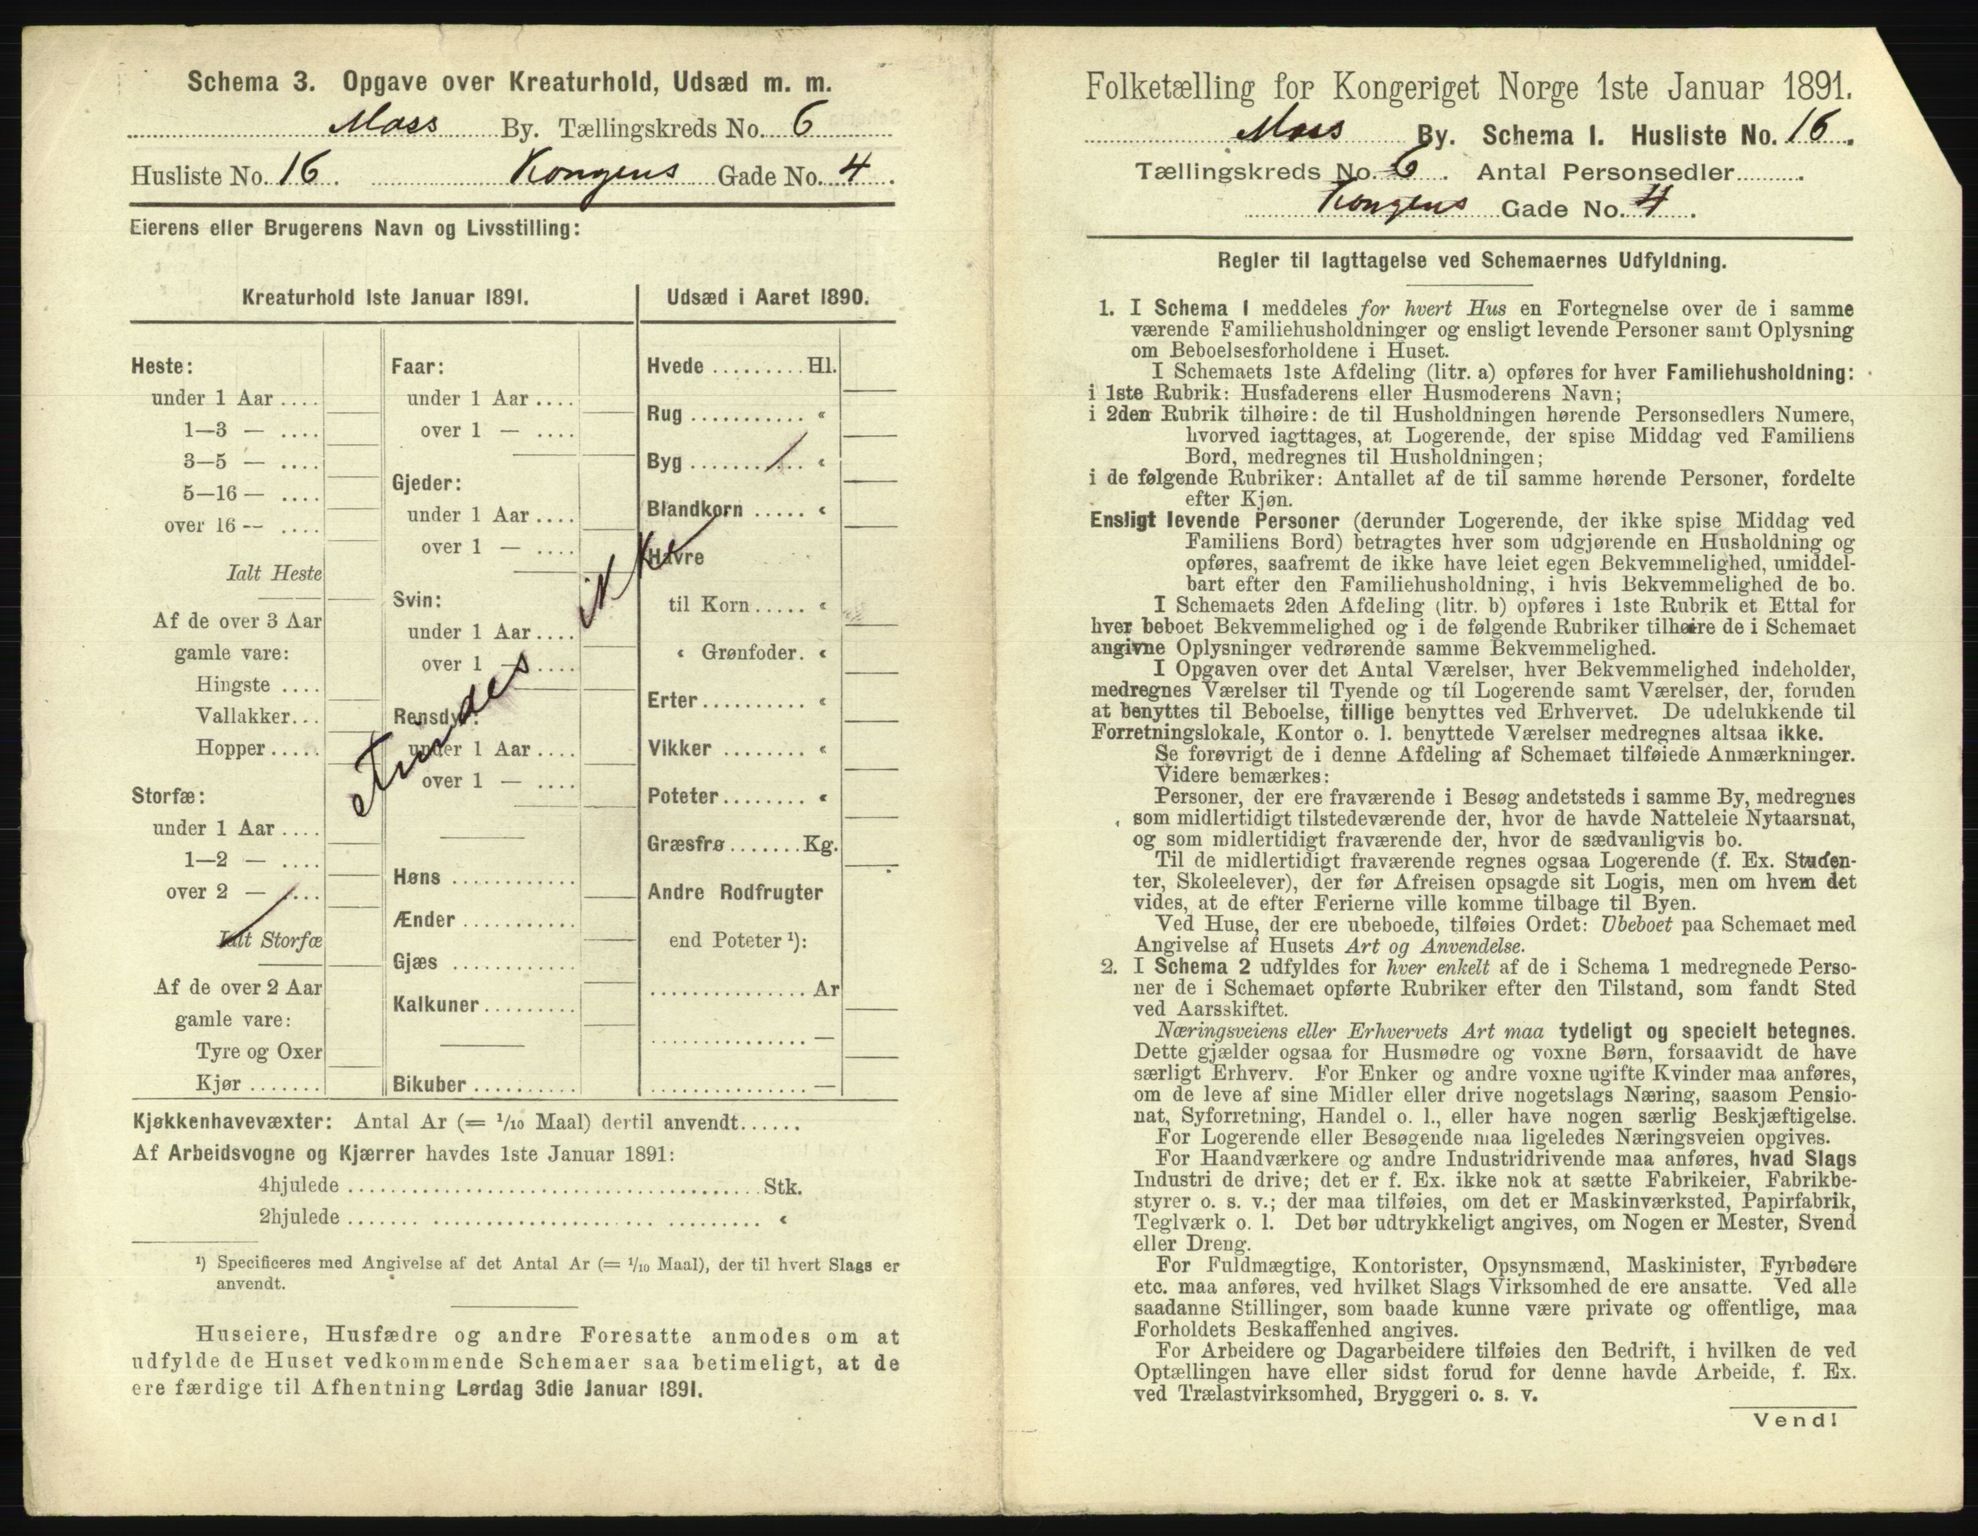 Schema 3. Opgave over Kreaturhold, Udsæd m. m.
Moss By. Tællingskreds No. 6
Husliste No. 16. Kongens Gade No. 4.
Eierens eller Brugerens Navn og Livsstilling:
Kreaturhold 1ste Januar 1891.
Heste:
under 1 Aar ....
1—3 — ....
3—5 — ....
5—16 — ....
over 16 — ....
Ialt Heste
Af de over 3 Aar
gamle vare:
Hingste ....
Vallakker...
Hopper .....
Storfæ:
under 1 Aar ....
1—2 — ....
over 2 — ....
Ialt Storfæ
Af de over 2 Aar
gamle vare:
Tyre og Oxer
Kjør .......
Faar:
under 1 Aar ....
over 1 — ....
Gjeder:
under 1 Aar ....
over 1 — ....
Svin:
under 1 Aar ....
over 1 — ....
Rensdyr:
under 1 Aar ....
over 1 — ....
Høns ............
Ænder ...........
Gjæs ............
Kalkuner .........
Bikuber ..........
Findes ikke
Udsæd i Aaret 1890.
Hvede ......... Hl.
Rug ........... «
Byg ........... «
Blandkorn ..... «
Havre
til Korn ..... «
« Grønfoder. «
Erter ......... «
Vikker ........ «
Poteter ........ «
Græsfrø ....... Kg.
Andre Rodfrugter
end Poteter ¹):
............... Ar
............... —
............... —
Kjøkkenhavevæxter: Antal Ar (= 1/10 Maal) dertil anvendt......
Af Arbeidsvogne og Kjærrer havdes 1ste Januar 1891:
4hjulede ........................................ Stk.
2hjulede ........................................ «
¹) Specificeres med Angivelse af det Antal Ar (= 1/10 Maal), der til hvert Slags er
anvendt.
Huseiere, Husfædre og andre Foresatte anmodes om at
udfylde de Huset vedkommende Schemaer saa betimeligt, at de
ere færdige til Afhentning Lørdag 3die Januar 1891.
Folketælling for Kongeriget Norge 1ste Januar 1891.
Moss By. Schema 1. Husliste No. 16.
Tællingskreds No. 6. Antal Personsedler..........
Kongens Gade No. 4.
Regler til Iagttagelse ved Schemaernes Udfyldning.
1. I Schema 1 meddeles for hvert Hus en Fortegnelse over de i samme
værende Familiehusholdninger og ensligt levende Personer samt Oplysning
om Beboelsesforholdene i Huset.
I Schemaets 1ste Afdeling (litr. a) opføres for hver Familiehusholdning:
i 1ste Rubrik: Husfaderens eller Husmoderens Navn;
i 2den Rubrik tilhøire: de til Husholdningen hørende Personsedlers Numere,
hvorved iagttages, at Logerende, der spise Middag ved Familiens
Bord, medregnes til Husholdningen;
i de følgende Rubriker: Antallet af de til samme hørende Personer, fordelte
efter Kjøn.
Ensligt levende Personer (derunder Logerende, der ikke spise Middag ved
Familiens Bord) betragtes hver som udgjørende en Husholdning og
opføres, saafremt de ikke have leiet egen Bekvemmelighed, umiddel-
bart efter den Familiehusholdning, i hvis Bekvemmelighed de bo.
I Schemaets 2den Afdeling (litr. b) opføres i 1ste Rubrik et Ettal for
hver beboet Bekvemmelighed og i de følgende Rubriker tilhøire de i Schemaet
angivne Oplysninger vedrørende samme Bekvemmelighed.
I Opgaven over det Antal Værelser, hver Bekvemmelighed indeholder,
medregnes Værelser til Tyende og til Logerende samt Værelser, der, foruden
at benyttes til Beboelse, tillige benyttes ved Erhvervet. De udelukkende til
Forretningslokale, Kontor o. l. benyttede Værelser medregnes altsaa ikke.
Se forøvrigt de i denne Afdeling af Schemaet tilføiede Anmærkninger.
Videre bemærkes:
Personer, der ere fraværende i Besøg andetsteds i samme By, medregnes
som midlertidigt tilstedeværende der, hvor de havde Natteleie Nytaarsnat,
og som midlertidigt fraværende der, hvor de sædvanligvis bo.
Til de midlertidigt fraværende regnes ogsaa Logerende (f. Ex. Studen-
ter, Skoleelever), der før Afreisen opsagde sit Logis, men om hvem det
vides, at de efter Ferierne ville komme tilbage til Byen.
Ved Huse, der ere ubeboede, tilføies Ordet: Ubeboet paa Schemaet med
Angivelse af Husets Art og Anvendelse.
2. I Schema 2 udfyldes for hver enkelt af de i Schema 1 medregnede Perso-
ner de i Schemaet opførte Rubriker efter den Tilstand, som fandt Sted
ved Aarsskiftet.
Næringsveiens eller Erhvervets Art maa tydeligt og specielt betegnes.
Dette gjælder ogsaa for Husmødre og voxne Børn, forsaavidt de have
særligt Erhverv. For Enker og andre voxne ugifte Kvinder maa anføres,
om de leve af sine Midler eller drive nogetslags Næring, saasom Pensio-
nat, Syforretning, Handel o. l., eller have nogen særlig Beskjæftigelse.
For Logerende eller Besøgende maa ligeledes Næringsveien opgives.
For Haandværkere og andre Industridrivende maa anføres, hvad Slags
Industri de drive; det er f. Ex. ikke nok at sætte Fabrikeier, Fabrikbe-
styrer o. s. v.; der maa tilføies, om det er Maskinværksted, Papirfabrik,
Teglværk o. l. Det bør udtrykkeligt angives, om Nogen er Mester, Svend
eller Dreng.
For Fuldmægtige, Kontorister, Opsynsmænd, Maskinister, Fyrbødere
etc. maa anføres, ved hvilket Slags Virksomhed de ere ansatte. Ved alle
saadanne Stillinger, som baade kunne være private og offentlige, maa
Forholdets Beskaffenhed angives.
For Arbeidere og Dagarbeidere tilføies den Bedrift, i hvilken de ved
Optællingen have eller sidst forud for denne havde Arbeide, f. Ex.
ved Trælastvirksomhed, Bryggeri o. s. v.
Vend!